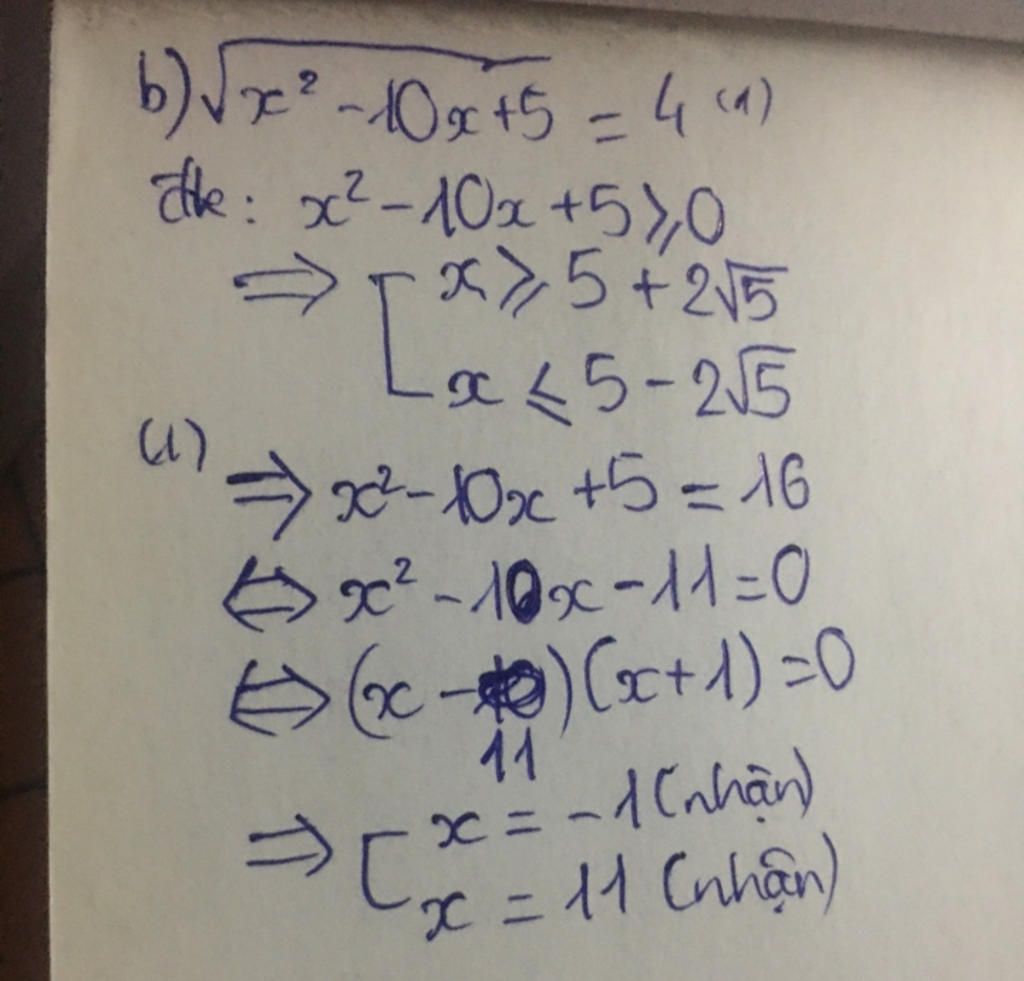 b) √(x² - 10x + 5) = 4 (1)
đk: x² - 10x + 5 ⩾ 0
⇒ [ x ⩾ 5 + 2√5
x ⩽ 5 - 2√5
(1)
⇒ x² - 10x + 5 = 16
⇔ x² - 10x - 11 = 0
⇔ (x - 11)(x + 1) = 0
⇒ [ x = -1 (nhận)
x = 11 (nhận)